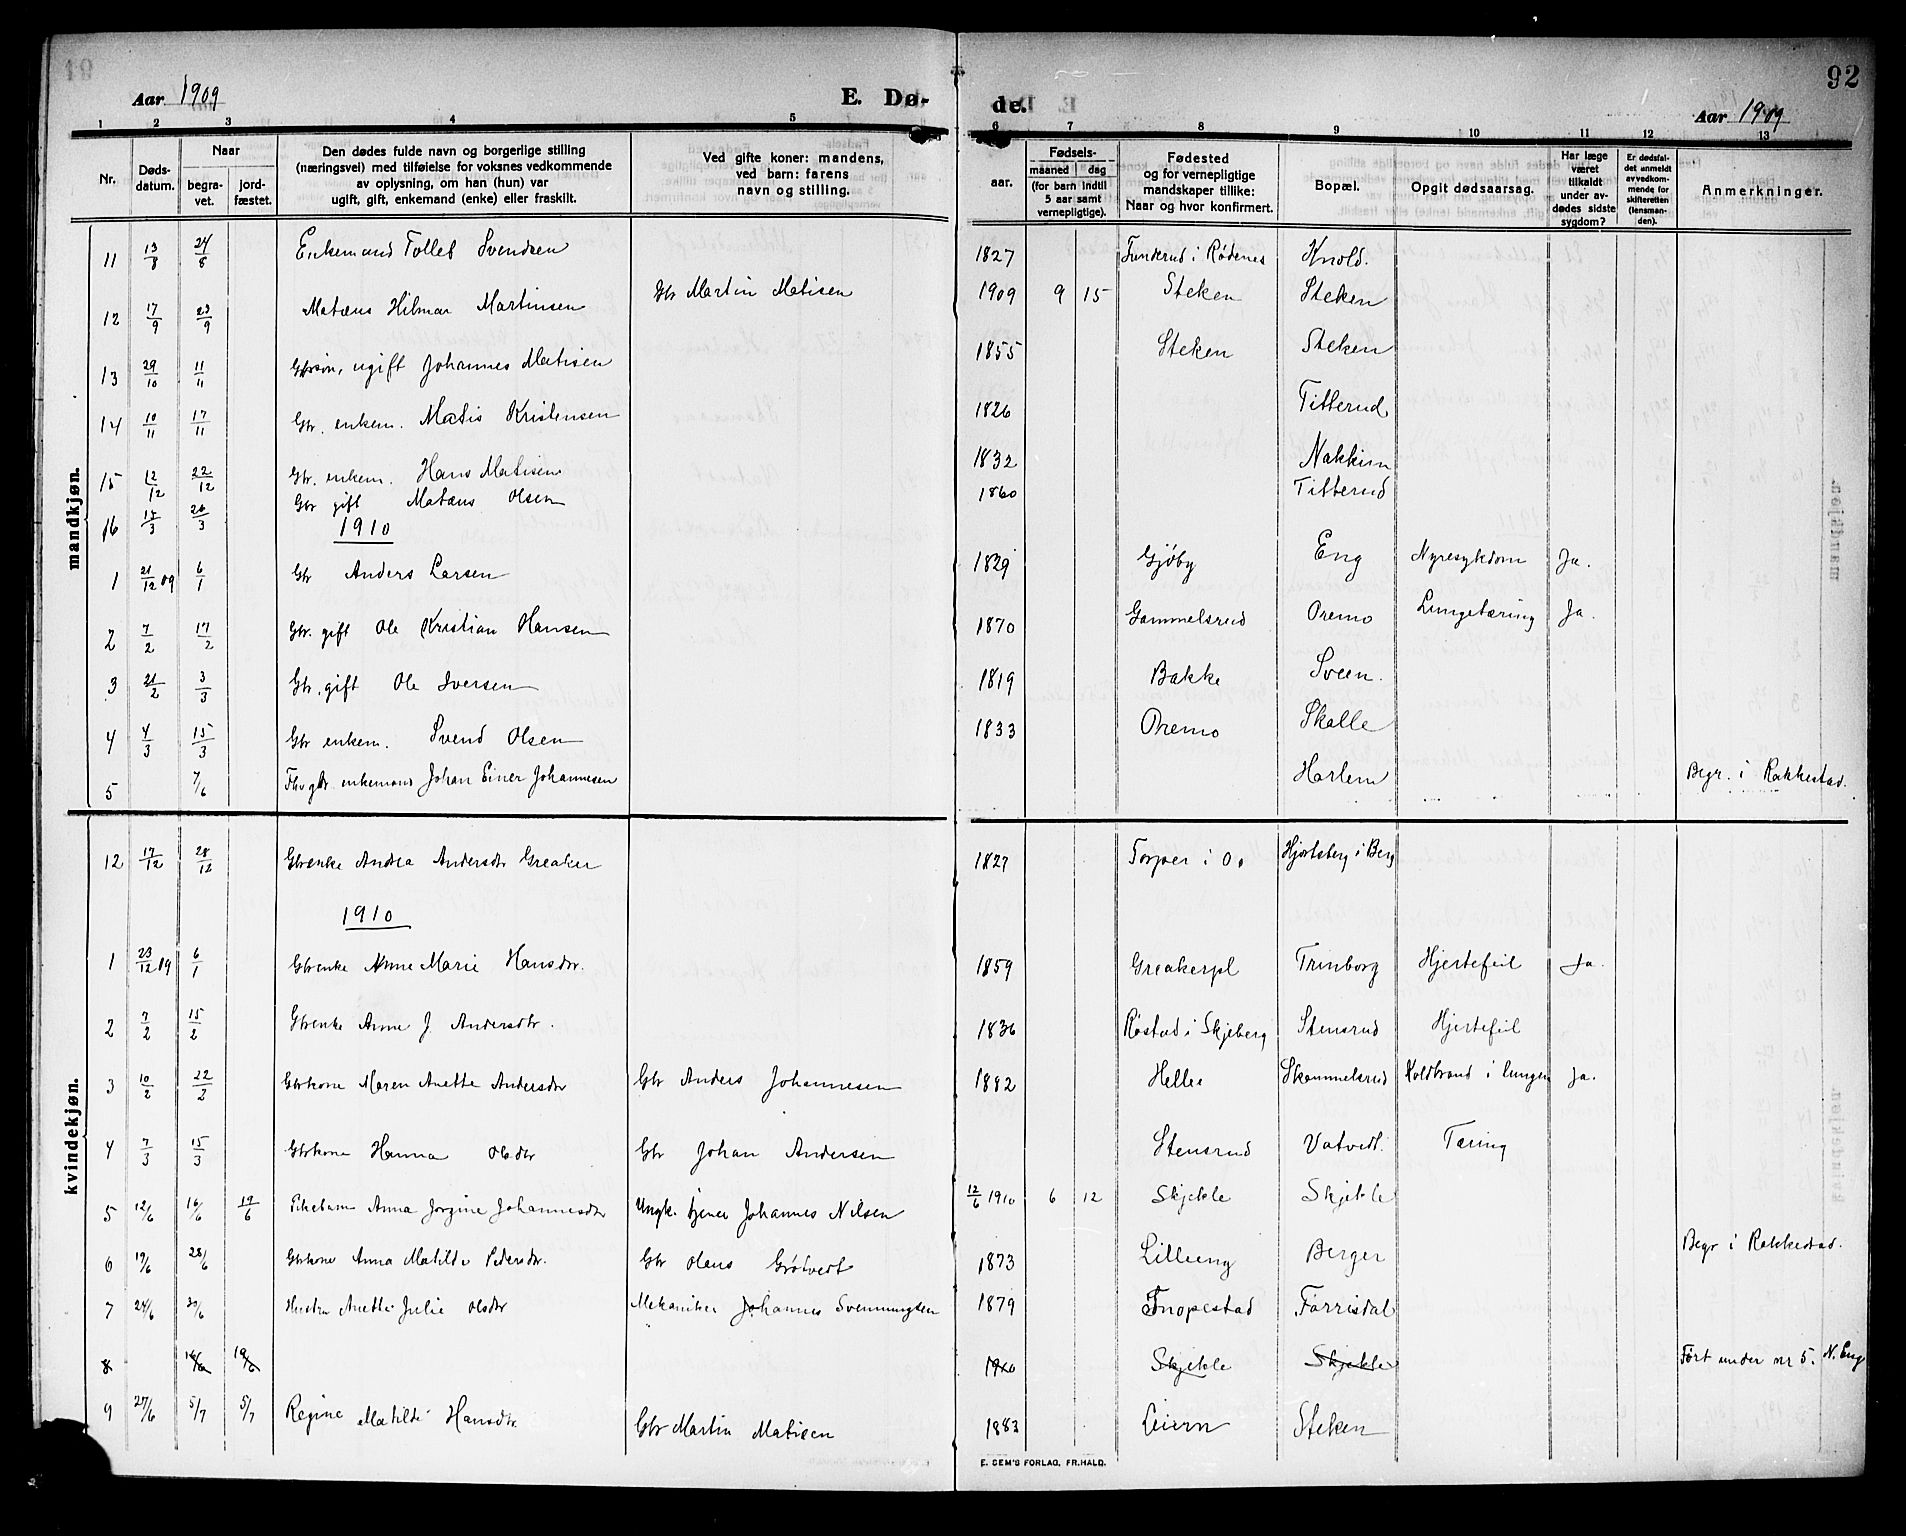 Aar 1909 E. Dø- de. Aar 1909 92
1 2 3 4 5 6 7 8 9 10 11 12 13
Nr. Dødsdatum. Naar begravet. jordfæstet. Den dødes fulde navn og borgerlige stilling (næringsvei) med tilføielse for voksnes vedkommende av oplysning, om han (hun) var ugift, gift, enkemand (enke) eller fraskilt. Ved gifte koner: mandens, ved barn: farens navn og stilling. Fødsels- aar. maaned dag (for barn indtil 5 aar samt vernepligtige). Fødested og for vernepligtige mandskaper tillike: Naar og hvor konfirmert. Bopæl. Opgit dødsaarsag. Har læge været tilkaldt under avdødes sidste sygdom? Er dødsfaldet anmeldt av vedkommende for skifteretten (lensmanden). Anmerkninger.
mandkjøn.
11 13/8 24/8 Enkemand Tollef Svendsen 1827 Tunderud i Rødenes Knold.
12 17/9 23/9 Matæus Hilmar Martinsen Gbr Martin Matisen 1909 9 15 Steken Steken
13 29/10 11/11 Gbrsøn, ugift Johannes Matisen 1855 Steken Steken
14 10/11 17/11 Gbr. enkem. Matis Kristensen 1826 Titterud
15 12/12 22/12 Gbr. enkem. Hans Matisen 1832 Nakkim
16 15/3 20/3 Gbr gift Matæus Olsen 1860 Titterud
1910
1 21/12 09 6/1 Gbr Anders Larsen 1829 Gjøby Eng Nyresykdom Ja.
2 7/2 17/2 Gbr. gift Ole Kristian Hansen 1870 Gammelsrud Oremo Lungetæring Ja.
3 21/2 3/3 Gbr. gift Ole Iversen 1819 Bakke Sveen.
4 4/3 15/3 Gbr enkem. Svend Olsen 1833 Oremo Skolle
5 7/6 enkemand Johan Einer Johannesen Harlem Begr. i Rakkestad.
kvindekjøn.
12 17/12 28/12 Gbrenke Andrea Andersdtr Greaker 1827 Torper i Os Hjortsberg i Berg
1910
1 23/12 09 6/1 Gbrenke Anne Marie Hansdtr. 1859 Greakerpl Trinborg Hjertefeil Ja.
2 7/2 15/2 Gbrenke Anne J. Andersdtr. 1836 Røstad i Skjeberg Stensrud Hjertefeil
3 10/2 22/2 Gbrkone Maren Anette Andersdtr Gbr Anders Johannesen 1882 Helle Skammelsrud Koldbrand i lungen Ja.
4 7/3 15/3 Gbrkone Hanna Olsdtr Gbr Johan Andersen Stensrud Vatvedt. Tæring
5 12/6 16/6 19/6 Pikebarn Anna Jorgine Johannesdtr Ungk. tjener Johannes Nilsen 12/6 1910 6 12 Skjekle Skjekle
6 19/6 28/6 Gbrkone Anna Matilde Pedersdtr. Gbr Olaus Grøtvedt 1873 Lilleeng Berger Begr i Rakkestad.
7 24/6 30/6 Hustru Anette Julie Olsdtr Mekaniker Johannes Svenningsen 1879 Tnopestad Førrisdal
8 16/6 19/6 1910 Skjekle Skjekle Ført under nr 5. N. Eng
9 27/6 5/7 5/7 Regine Matilde Hansdtr. Gbr Martin Matisen 1883 Leiern Steken
E. SEM'S FORLAG, FR.HALD.